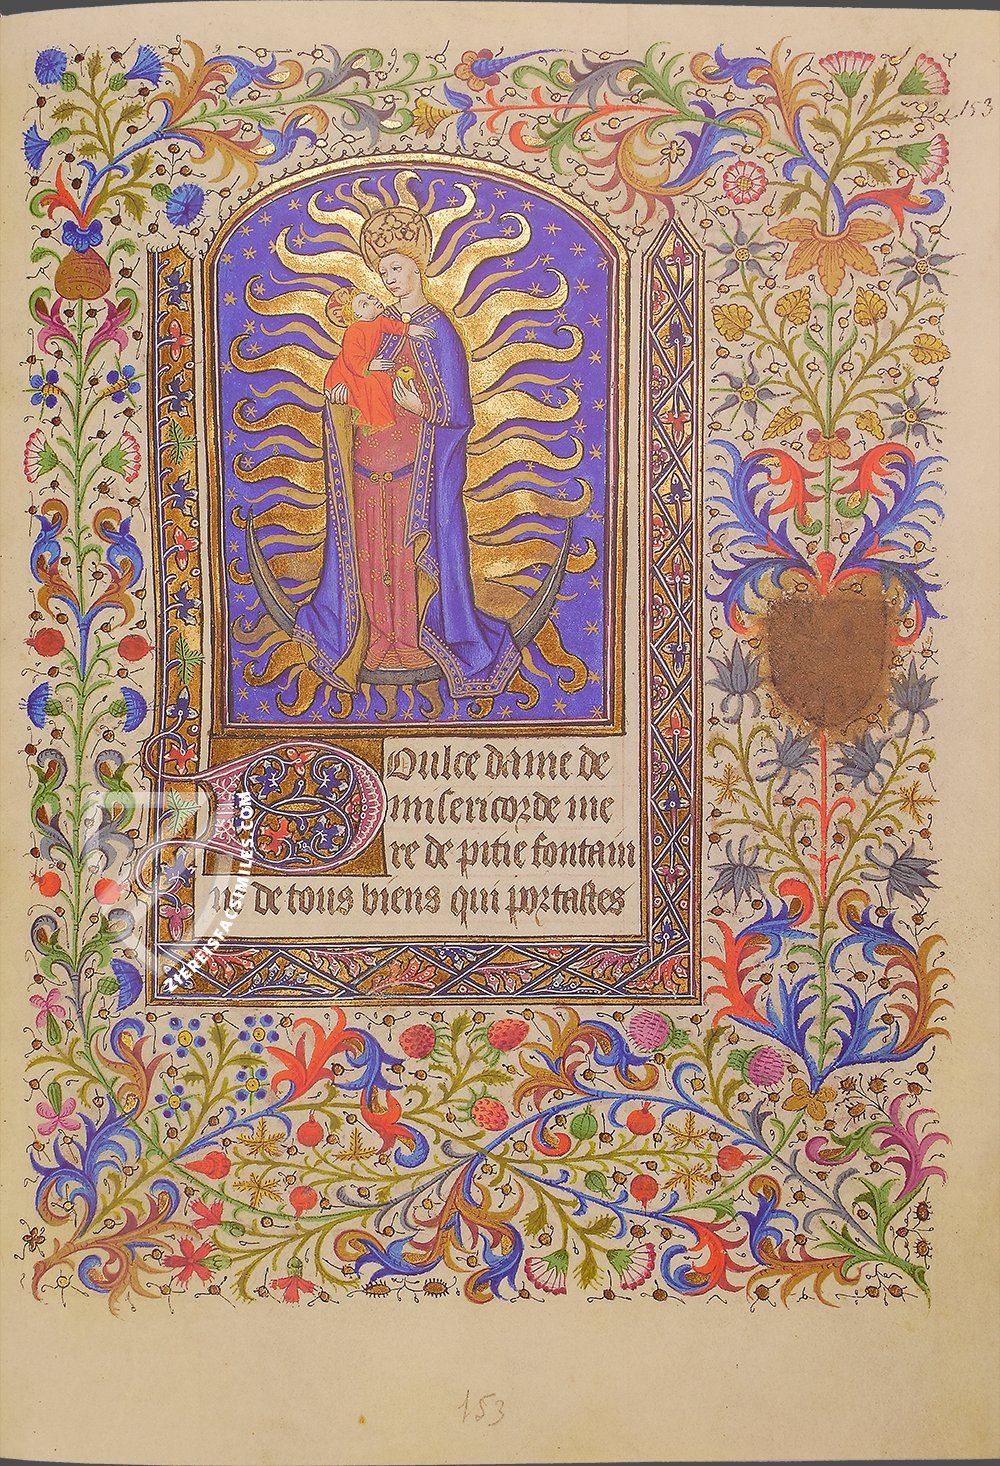 153
Doulce dame de
misericorde me
re de pitie fontain
ne de tous biens qui portastes
ZIEREISFACSIMILES.COM
153